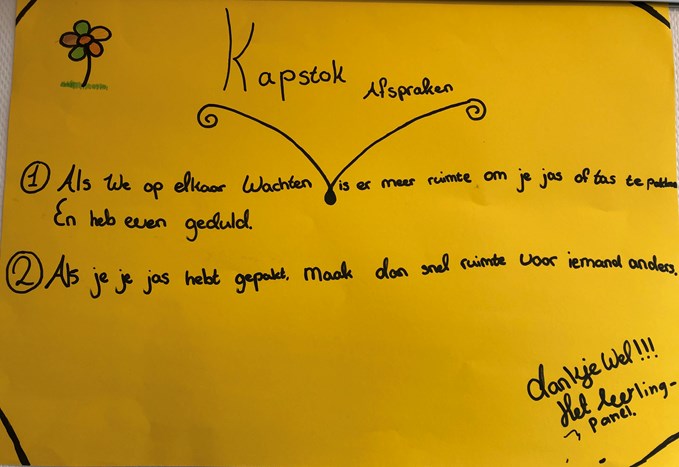 Kapstok Afspraken
① Als We op elkaar Wachten is er meer ruimte om je jas of tas te pakken
En heb even geduld.
② Als je je jas hebt gepakt. Maak dan snel ruimte voor iemand anders.
dankjeWel!!!
Het leerling-
Panel.